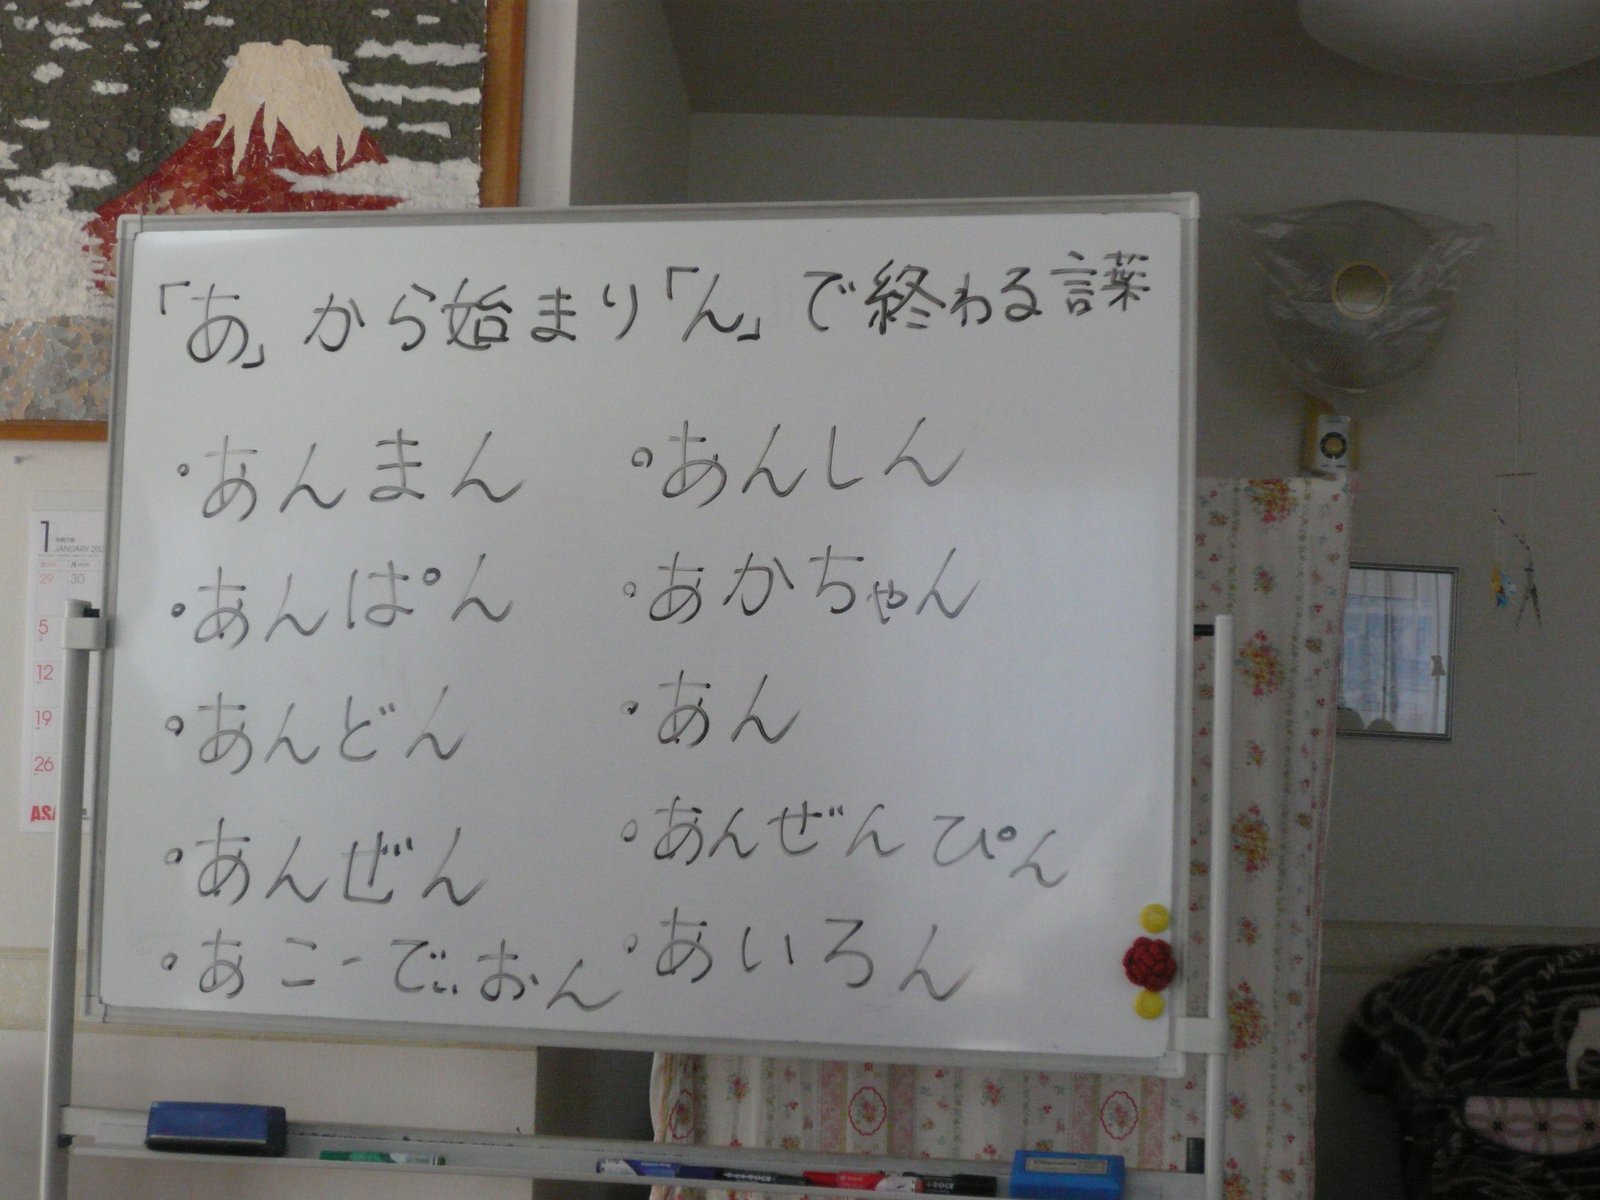 「あ」から始まり「ん」で終わる言葉
・あんまん
・あんぱん
・あんどん
・あんぜん
・あこーでぃおん
・あんしん
・あかちゃん
・あん
・あんぜんぴん
・あいろん
1
JANUARY 202
29 30
5
12
19
26
ASA